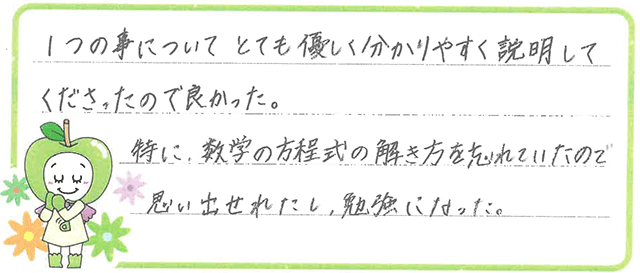 1つの事について とても優しく分かりやすく説明して
くださったので良かった。
特に、数学の方程式の解き方を忘れていたので
思い出せれたし、勉強になった。